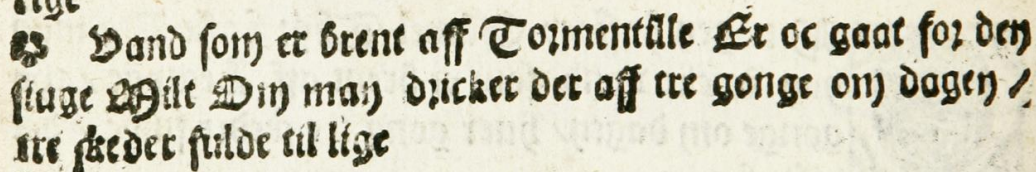 lige
☙ Vand som er brent aff Tormentille Er oc gaat for den
siuge Milt Om man dricker der aff tre gonge om dagen /
tre skeder fulde til lige